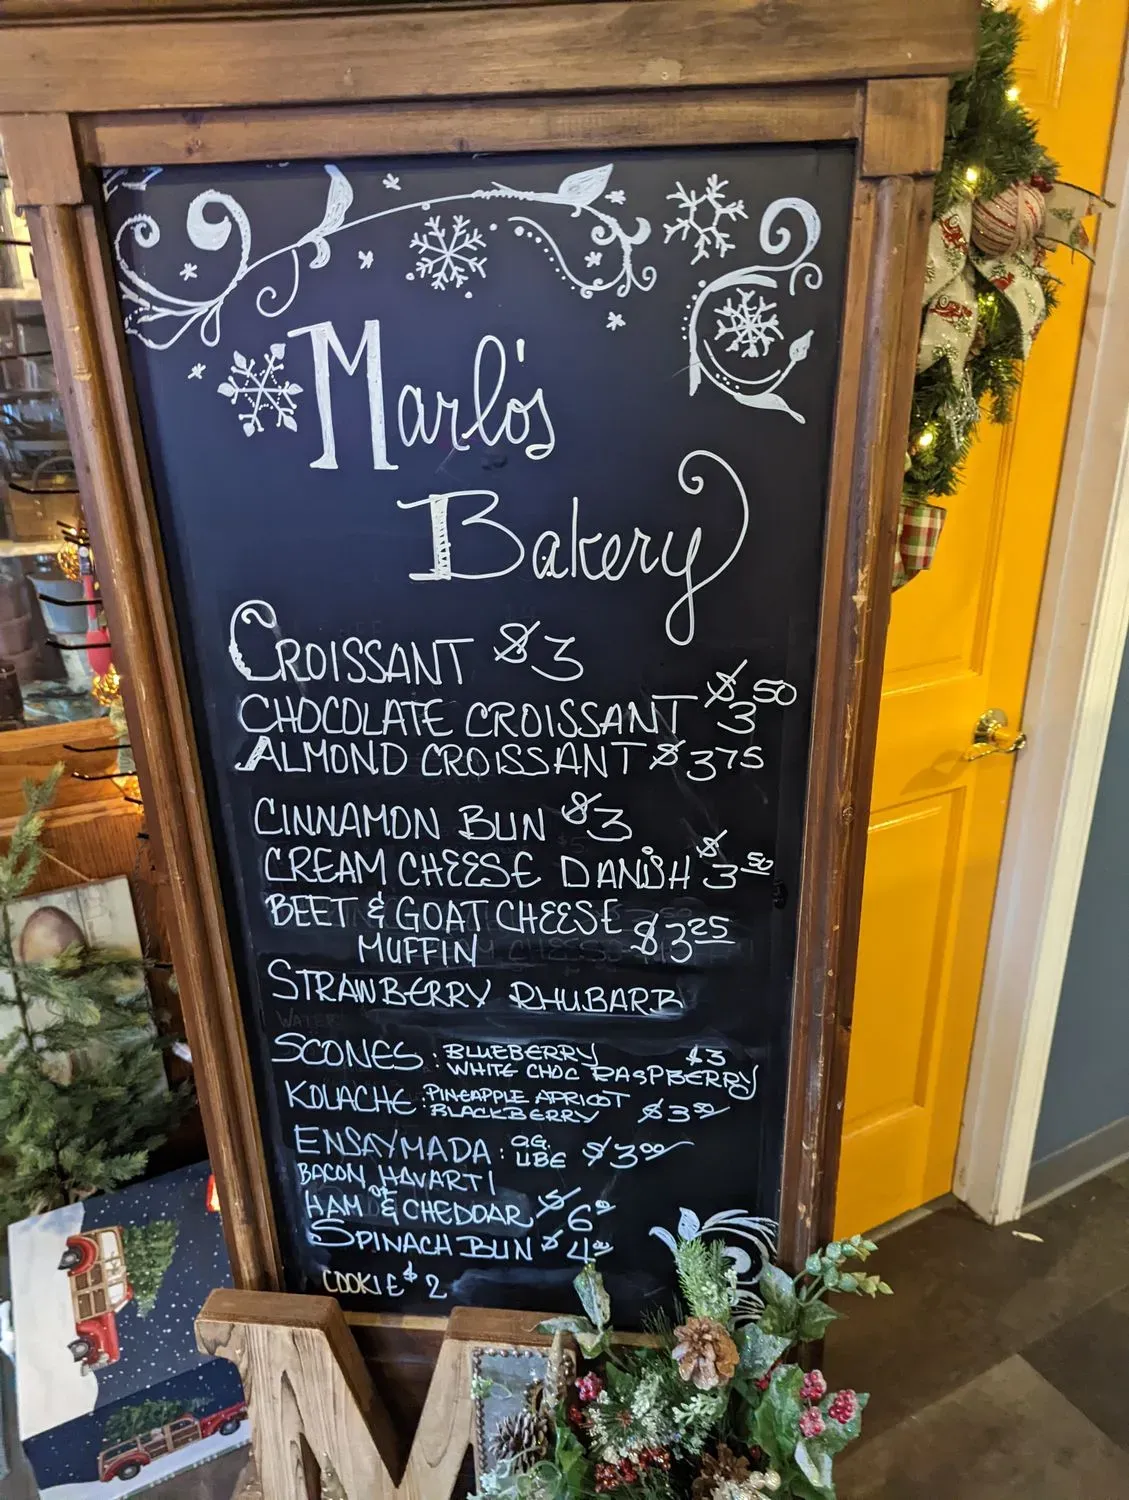 Marlo's
Bakery
CROISSANT $3
CHOCOLATE CROISSANT $3.50
ALMOND CROISSANT $3.75
CINNAMON BUN $3
CREAM CHEESE DANISH $3.50
BEET & GOAT CHEESE $3.25
MUFFIN
STRAWBERRY RHUBARB
SCONES: BLUEBERRY $3
WHITE CHOC RASPBERRY
KOLACHE: PINEAPPLE APRICOT
BLACKBERRY $3.50
ENSAYMADA: OG. $3.00
UBE
BACON HAVARTI
or
HAM & CHEDDAR $6.00
SPINACH BUN $4.00
COOKIE $2